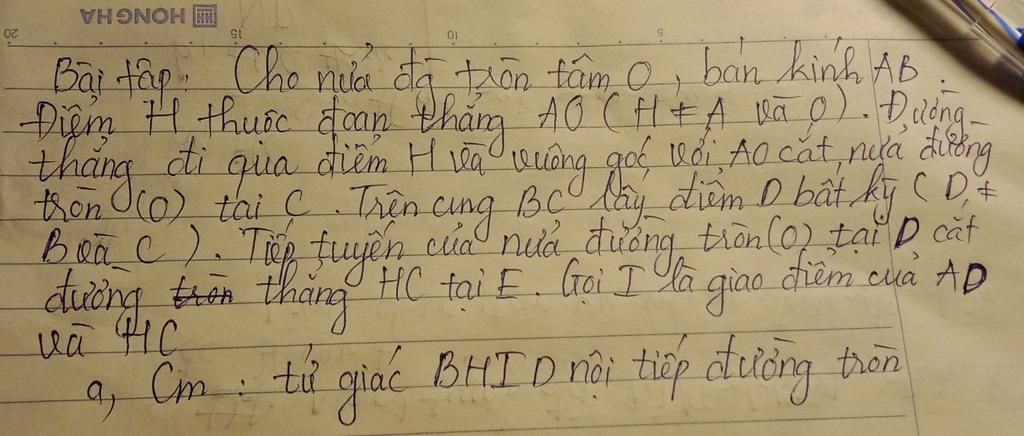 HONG HA
20 15 10 5
Bài tập: Cho nửa đg tròn tâm O, bán kính AB.
Điểm H thuộc đoạn thẳng AO (H ≠ A và O). Đường
thẳng đi qua điểm H và vuông góc với AO cắt nửa đường
tròn (O) tại C. Trên cung BC lấy điểm D bất kỳ (D ≠
B và C). Tiếp tuyến của nửa đường tròn (O) tại D cắt
đường tròn thẳng HC tại E. Gọi I là giao điểm của AD
và HC
a, Cm: tứ giác BHID nội tiếp đường tròn